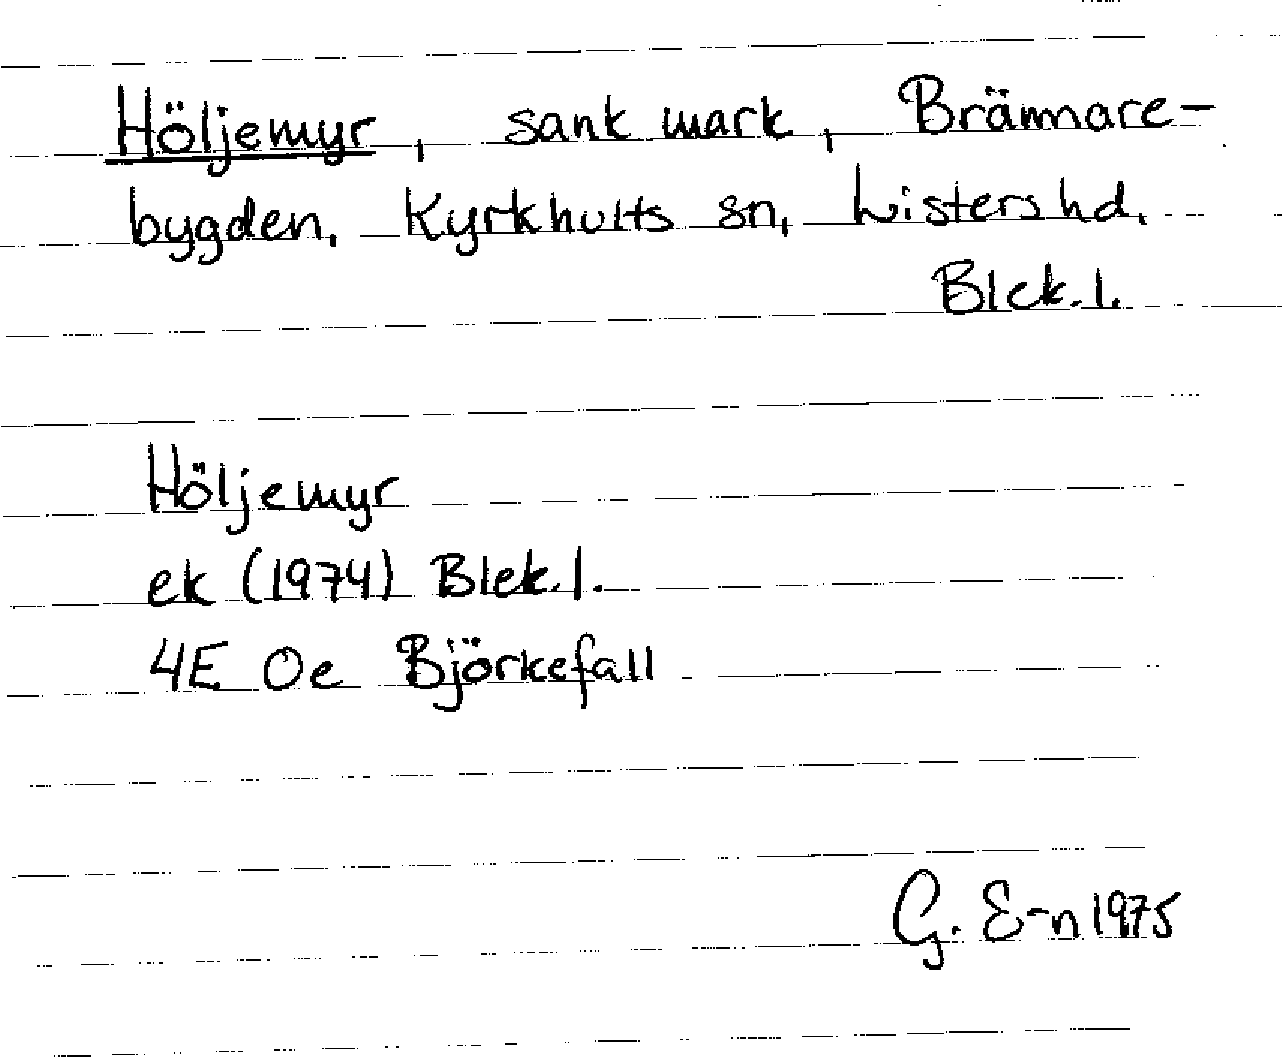 Höljemyr, sank mark, Brännare-
bygden, Kyrkhults sn, Listers hd,
Blek. l.
Höljemyr
ek (1974) Blek. l.
4E Oe Björkefall
G. E-n 1975